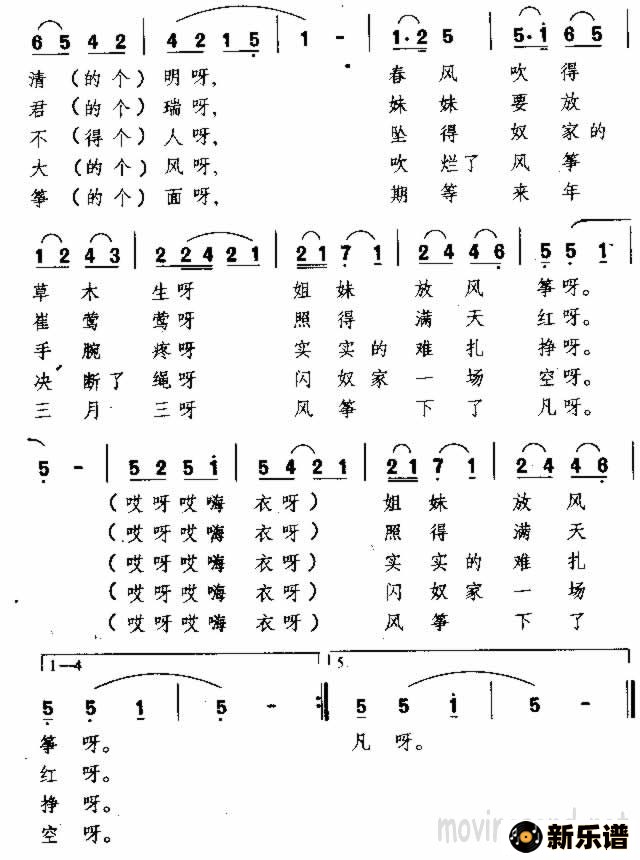 6 5 4 2 | 4 2 1 5 | 1 - | 1·2 5 | 5·1 6 5 |
清（的个）明呀， 春风吹得
君（的个）瑞呀， 妹妹要放
不（得个）人呀， 坠得奴家的
大（的个）风呀， 吹烂了风筝
筝（的个）面呀， 期等来年
1 2 4 3 | 2 2 4 2 1 | 2 1 7 1 | 2 4 4 6 | 5 5 1 |
草木生呀 姐妹放风筝呀。
崔莺莺呀 照得满天红呀。
手腕疼呀 实实的难扎挣呀。
决断了绳呀 闪奴家一场空呀。
三月三呀 风筝下了凡呀。
5 - | 5 2 5 1 | 5 4 2 1 | 2 1 7 1 | 2 4 4 6 |
（哎呀哎嗨衣呀）姐妹放风
（哎呀哎嗨衣呀）照得满天
（哎呀哎嗨衣呀）实实的难扎
（哎呀哎嗨衣呀）闪奴家一场
（哎呀哎嗨衣呀）风筝下了
1—4 5.
5 5 1 | 5 - :| 5 5 1 | 5 - ‖
筝呀。 凡呀。
红呀。
挣呀。
空呀。
新乐谱